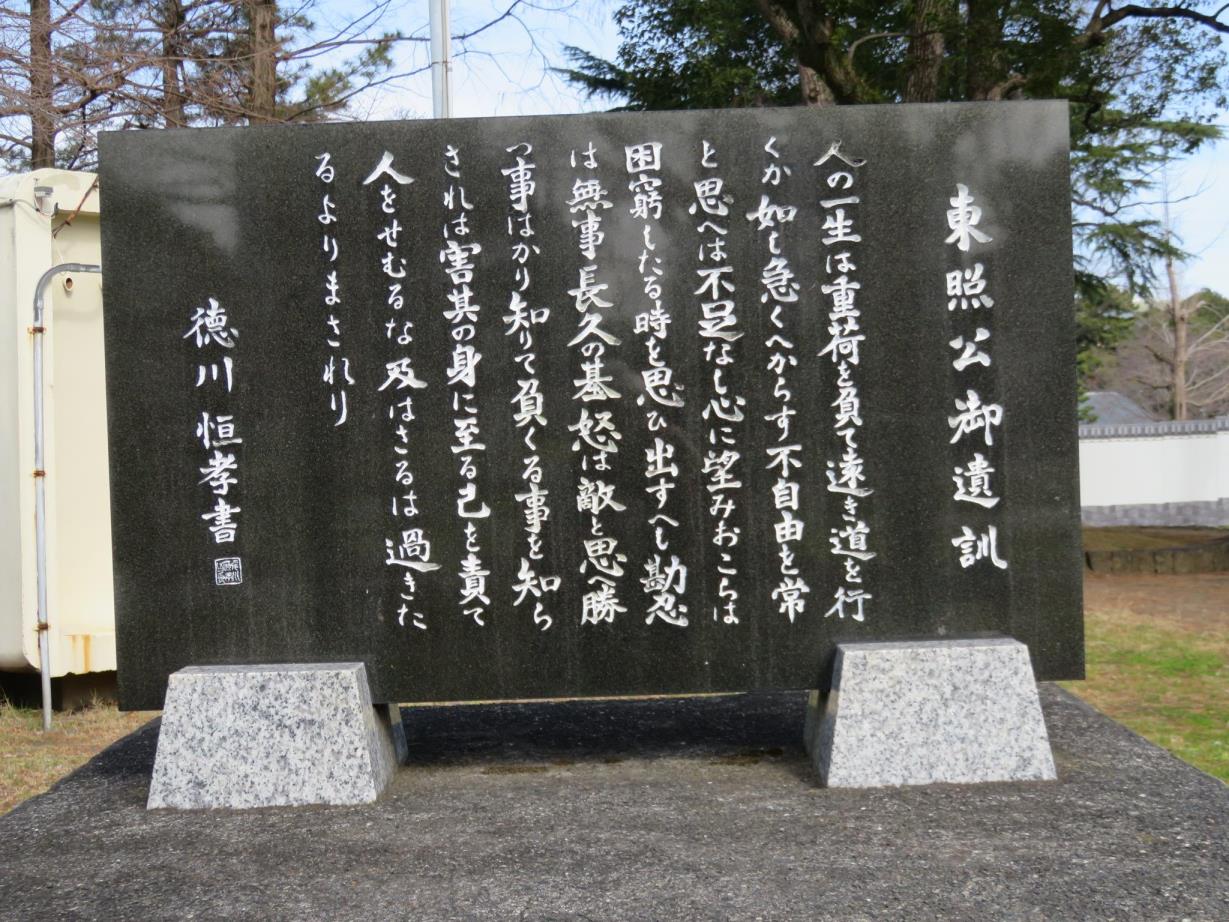 東照公御遺訓
人の一生は重荷を負て遠き道を行
くか如し急くへからす不自由を常
と思へは不足なし心に望みおこらは
困窮したる時を思ひ出すへし勘忍
は無事長久の基怒は敵と思へ勝
つ事はかり知りて負くる事を知ら
されは害其の身に至る己を責て
人をせむるな及はさるは過きた
るよりまされり
徳川恒孝書